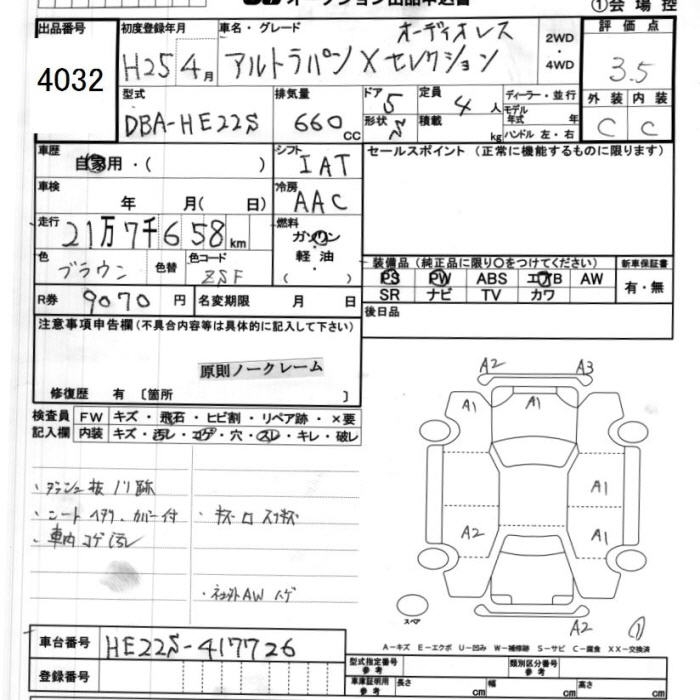 オークション出品申込書
①会場控
出品番号 初度登録年月 車名・グレード オーディオレス 2WD ・ 4WD 評価点
4032 H25 4月 アルトラパン X セレクション 3.5
型式 排気量 ドア 5 定員 4人 ディーラー・並行 外装 内装
DBA-HE22S 660cc 形状 5 積載 kg モデル年式 年 ハンドル 左・右 C C
車歴 自家用・( ) シフト IAT セールスポイント (正常に機能するものに限ります)
車検 年 月( 日) 冷房 AAC
走行 21万7千658km 燃料 ガソリン ・ 軽油 ・ ( )
色 ブラウン 色替 色コード ZSF
装備品 (純正品に限り〇をつけてください) 新車保証書
PS PW ABS エアB AW 有・無
SR ナビ TV カワ
R券 9070円 名変期限 月 日 後日品
注意事項申告欄 (不具合内容等は具体的に記入して下さい)
原則ノークレーム
修復歴 有 〔箇所 〕
検査員 FW キズ・飛石・ヒビ割・リペア跡・×要
記入欄 内装 キズ・汚レ・コゲ・穴・スレ・キレ・破レ
A2 A3
A1 A1
A1
A2 A1
A2
・ダッシュ板 ノリ跡
・シート ヘタリ、カバー付 ・キズ
・車内コゲ汚レ
・社外AW ハゲ
スペア
①
車台番号 HE22S-417726
A-キズ E-エクボ U-凹み W-補修跡 S-サビ C-腐食 XX-交換済
登録番号 型式指定番号 参考 類別区分番号 参考
車庫証明用 参考 長さ cm 幅 cm 高さ cm